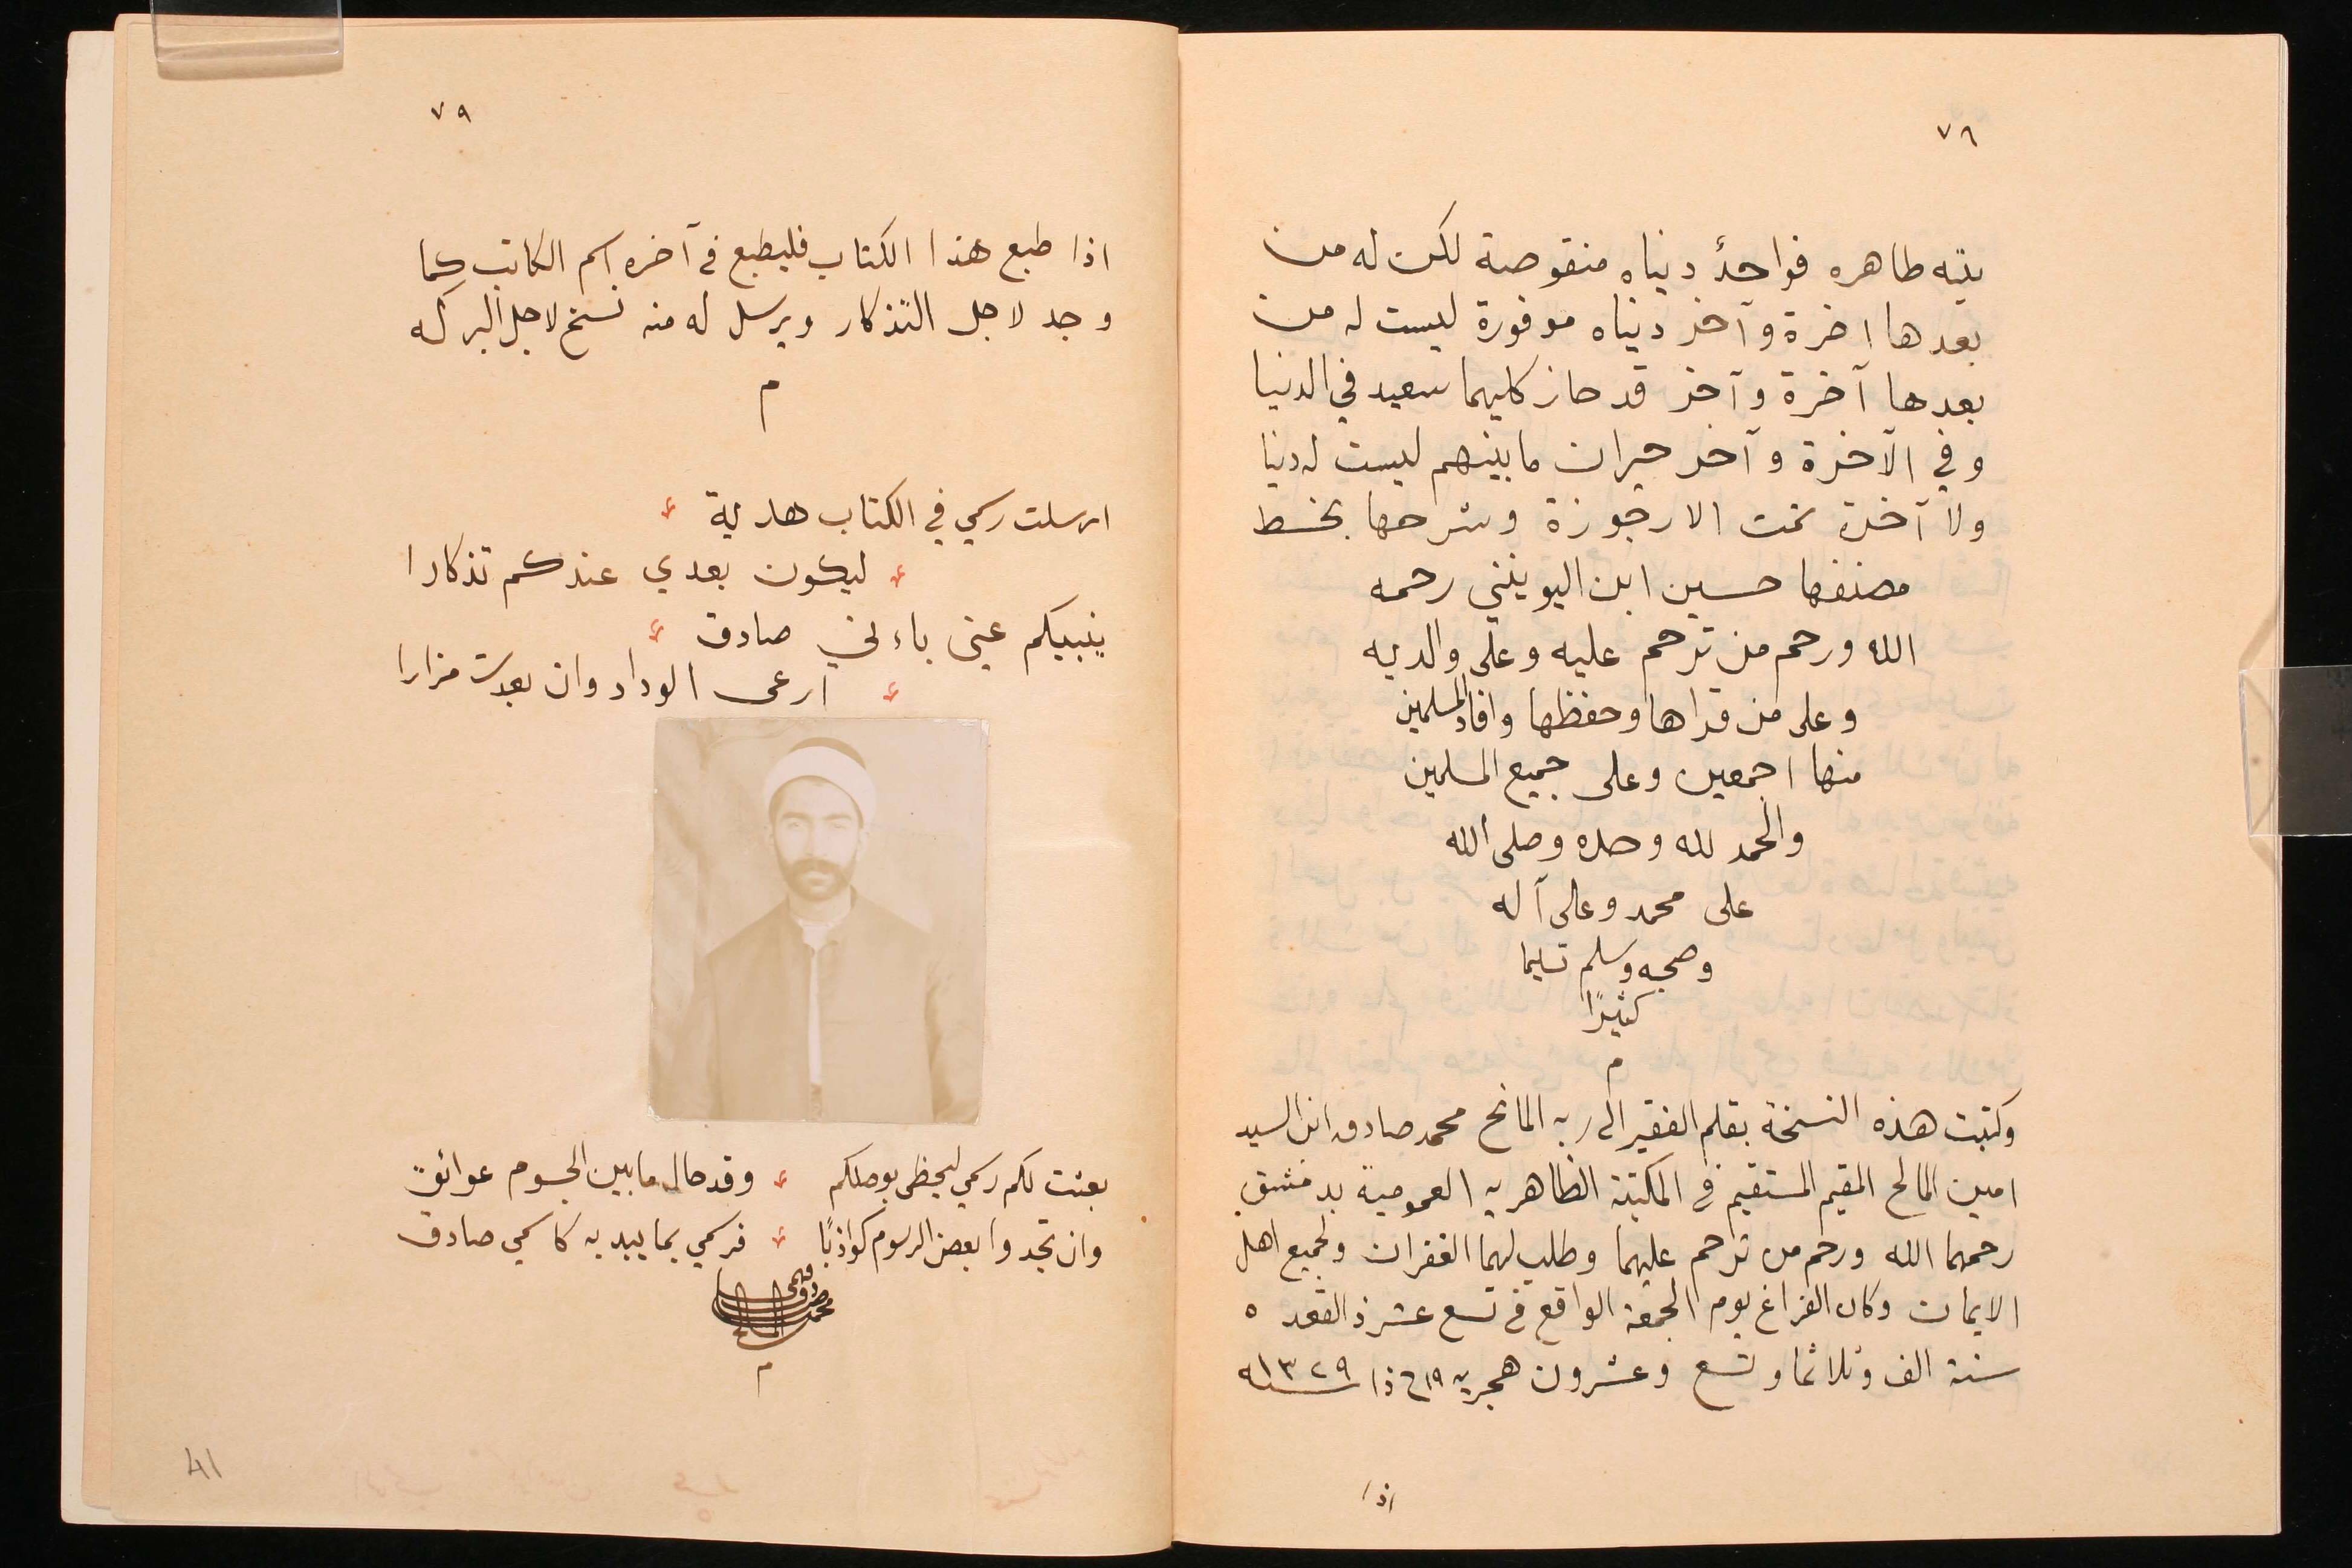 ٧٦
بيّنه ظاهره فواحدٌ دنياه منقوصة لكن له من
بعدها اخرة وآخر دنياه موفورة ليست له من
بعدها آخرة وآخر قد حاز كليهما سعيد في الدنيا
وفي الآخرة وآخر حيران ما بينهم ليست له دنيا
ولا آخرة تمت الارجوزة وشرحها بخط
مصنفها حسين ابن اليونيني رحمه
الله ورحم من ترحم عليه وعلى والديه
وعلى من قراها وحفظها وافاد المسلمين
منها اجمعين وعلى جميع المسلمين
والحمد لله وحده وصلى الله
على محمد وعلى آله
وصحبه وسلم تسليما
كثيرًا
م
وكتبت هذه النسخة بقلم الفقير الى ربه المانح محمد صادق ابن السيد
امين المالح المقيم المستقيم في المكتبة الظاهريه العمومية بدمشق
رحمهما الله ورحم من ترحم عليهما وطلب لهما الغفران ولجميع اهل
الايمان وكان الفراغ يوم الجمعة الواقع في تسع عشر ذ القعده
سنة الف وثلاثما وتسع وعشرون هجريه ١٩ ذا سنه ١٣٢٩
اذا
٧٩
اذا طبع هذا الكتاب فليطبع في آخره اسم الكاتب كما
وجد لاجل التذكار ويرسل له منه نسخ لاجل البركه
م
ارسلت رسمي في الكتاب هدية
ليكون بعدي عندكم تذكارا
ينبيكم عني باءني صادق
ارعى الوداد وان بعدت مزارا
بعثت لكم رسمي ليحظى بوصلكم وقد حال ما بين الجسوم عوائق
وان تجدوا بعض الرسوم كواذبًا فرسمي بما يبديه كاسمي صادق
محمد صادق فهمي المالح
م
41